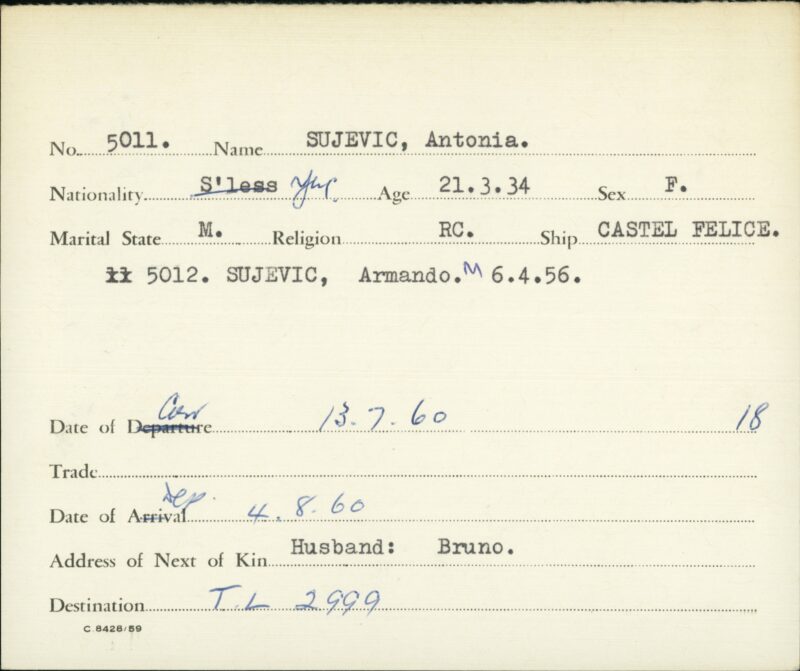 No. 5011. Name SUJEVIC, Antonia.
Nationality S'less Yug. Age 21.3.34 Sex F.
Marital State M. Religion RC. Ship CASTEL FELICE.
5012. SUJEVIC, Armando. M 6.4.56.
Date of Departure 13.7.60 18
Trade
Dep.
Date of Arrival 4.8.60
Address of Next of Kin Husband: Bruno.
Destination T.L 2999
C.8428/59